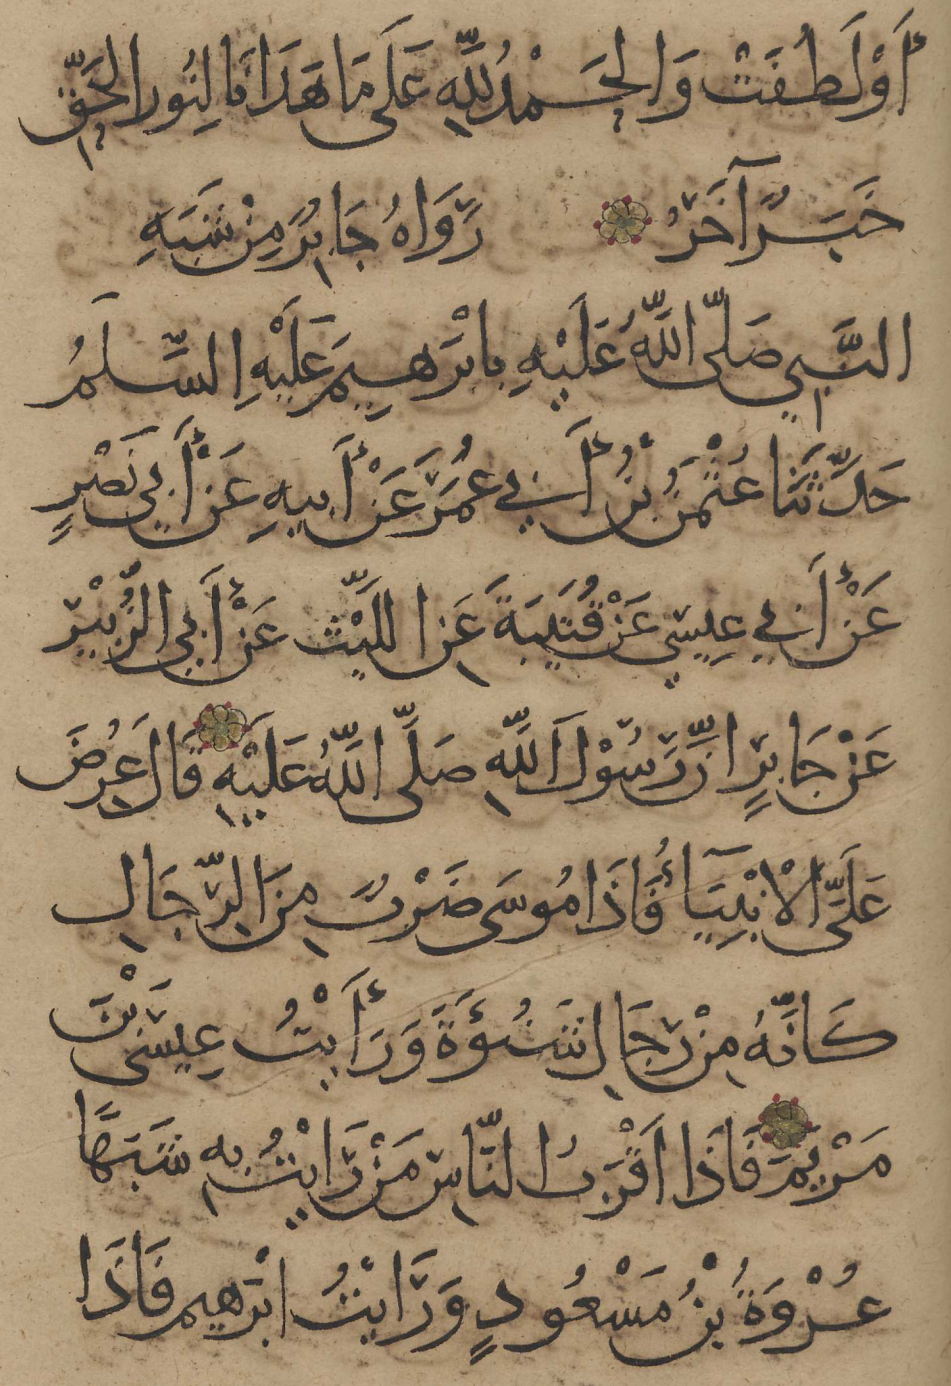 أَوْ لَطُفَتْ وَالْحَمْدُ لِلَّهِ عَلَى مَا هَدَانَا لِنُورِ الْحَقِّ
خَبَرٌ آخَرُ رَوَاهُ جَابِرٌ مِنْ شَبَهِ
النَّبِيِّ صَلَّى اللَّهُ عَلَيْهِ بِابْرَهِيمَ عَلَيْهِ السَّلَمُ
حَدَّثَنَا عُثْمَنُ بْنُ أَبِي عُمَرَ عَنْ أَبِيهِ عَنْ أَبِي نَصْرٍ
عَنْ أَبِي عِيسَى عَنْ قُتَيْبَةَ عَنِ اللَّيْثِ عَنْ أَبِي الزُّبَيْرِ
عَنْ جَابِرٍ انَّ رَسُوْلَ اللَّهِ صَلَّى اللَّهُ عَلَيْهِ قَالَ عُرِضَ
عَلَيَّ الْانْبِيَآءُ فَاذَا مُوسَى ضَرْبٌ مِنَ الرِّجَالِ
كَانَّهُ مِنْ رِجَالِ شَنُؤَةَ وَرَأَيْتُ عِيسَى بْنَ
مَرْيَمَ فَاذَا اقْرَبُ النَّاسِ مَنْ رَايْتُ بِهِ شَبَهًا
عُرْوَةُ بْنُ مَسْعُودٍ وَرَايْتُ ابْرَهِيمَ فَاذَا